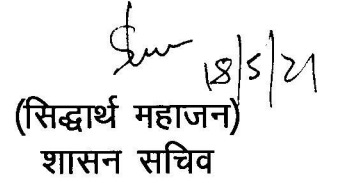 18/5/21
(सिद्धार्थ महाजन)
शासन सचिव